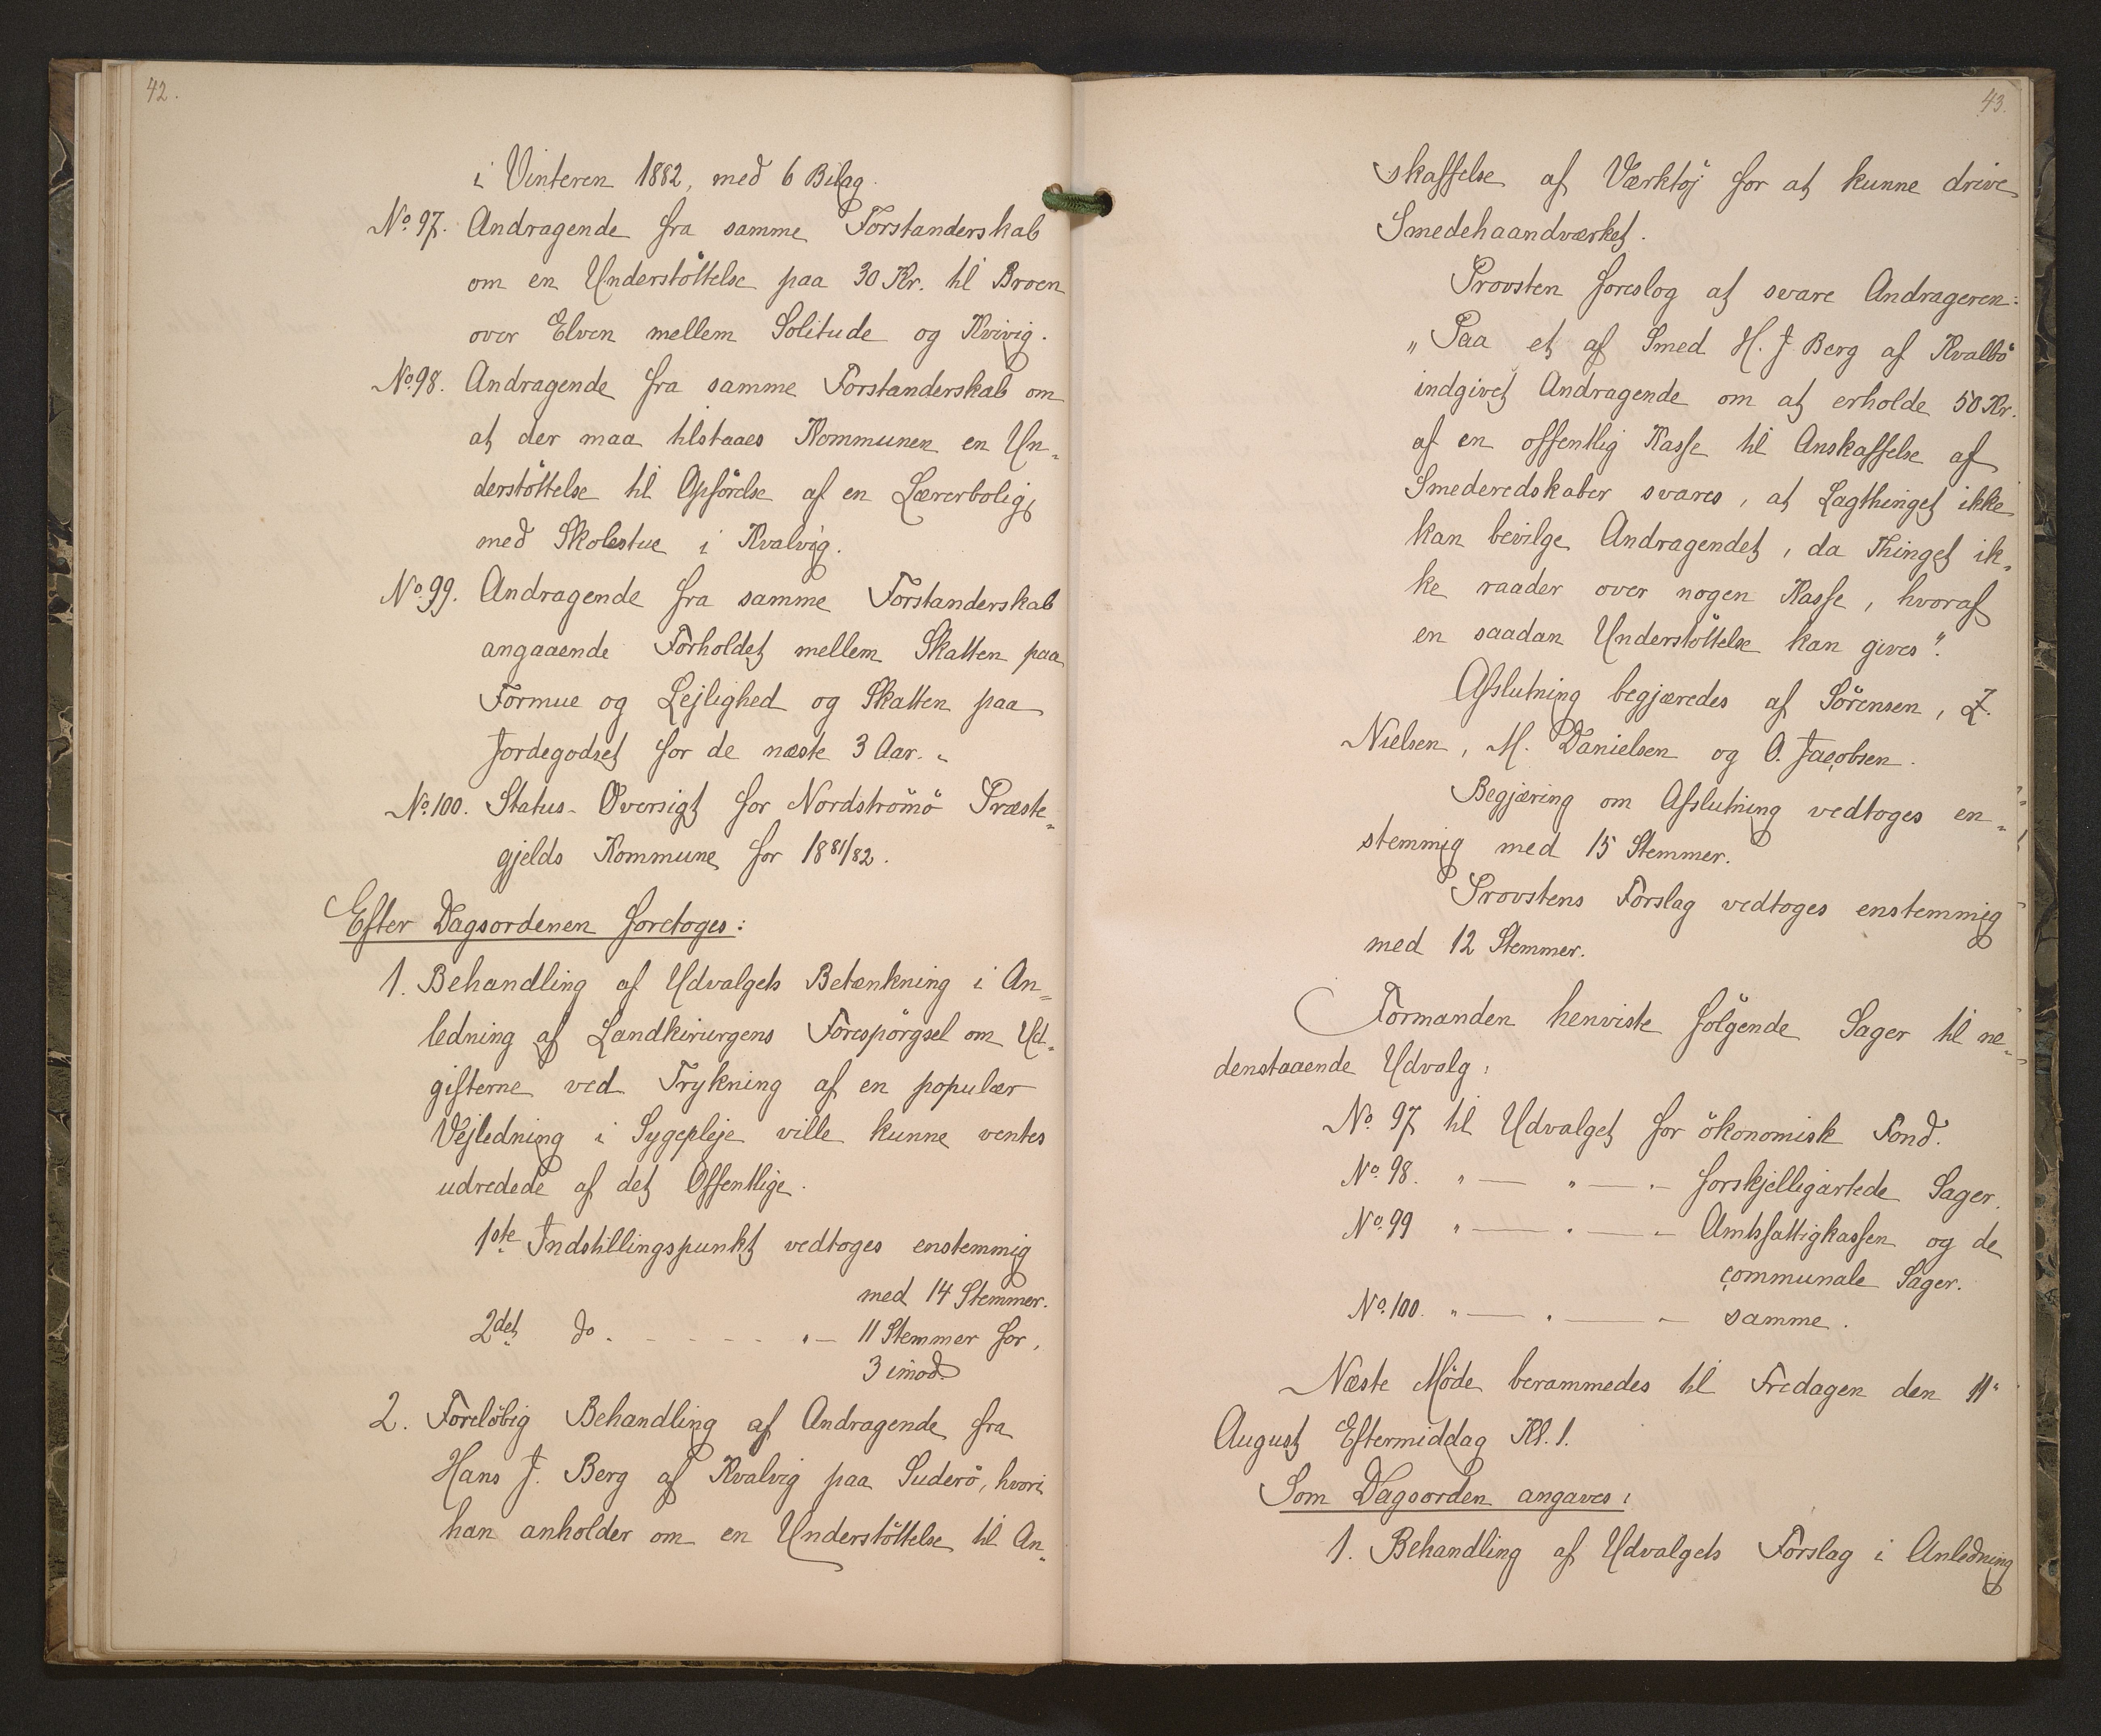 42.
i Vinteren 1882, med 6 Bilag.
No. 97. Andragende fra samme Forstanderskab
om en Understöttelse paa 30 Kr. til Broen
over Elven mellem Solitude og Kvivig.
No. 98. Andragende fra samme Forstanderskab om
at der maa tilstaaes Kommunen en Un-
derstöttelse til Opförelse af en Lærerbolig
med Skolestue i Kvalvig.
No. 99. Andragende fra samme Forstanderskab
angaaende Forholdet mellem Skatten paa
Formue og Lejlighed og Skatten paa
Jordegodset for de næste 3 Aar.
No. 100. Status-Oversigt for Nordströmö Præste-
gjelds Kommune for 1881/82.
Efter Dagsordenen foretoges:
1. Behandling af Udvalgets Betænkning i An-
ledning af Landkirurgens Forespörgsel om Ud-
gifterne ved Trykning af en populær
Vejledning i Sygepleje ville kunne ventes
udredede af det Offentlige.
1ste Indstillingspunkt vedtoges enstemmig
med 14 Stemmer.
2det do. - - - - - "— 11 Stemmer for,
3 imod.
2. Forelöbig Behandling af Andragende fra
Hans J. Berg af Kvalvig paa Suderö, hvori
han anholder om en Understöttelse til An-
43.
skaffelse af Værktöj for at kunne drive
Smedehaandværket.
Provsten foreslog at svare Andrageren:
„Paa et af Smed H. J. Berg af Kvalbö
indgivet Andragende om at erholde 50 Kr.
af en offentlig Kasse til Anskaffelse af
Smederedskaber svares, at Lagthinget ikke
kan bevilge Andragendet, da Thinget ik-
ke raader over nogen Kasse, hvoraf
en saadan Understöttelse kan gives".
Afslutning begjæredes af Sörensen, Z.
Nielsen, M. Danielsen og O. Jacobsen.
Begjæring om Afslutning vedtoges en-
stemmig med 15 Stemmer.
Provstens Forslag vedtoges enstemmig
med 12 Stemmer.
Formanden henviste fölgende Sager til ne-
denstaaende Udvalg:
No. 97 til Udvalget for ökonomisk Fond.
No. 98. "— "— "— forskjelligartede Sager.
No. 99 "— "— "— Amtsfattigkassen og de
communale Sager.
No. 100. "— "— — samme.
Næste Möde berammedes til Fredagen den 11"
August Eftermiddag Kl. 1.
Som Dagsorden angaves:
1. Behandling af Udvalgets Forslag i Anledning